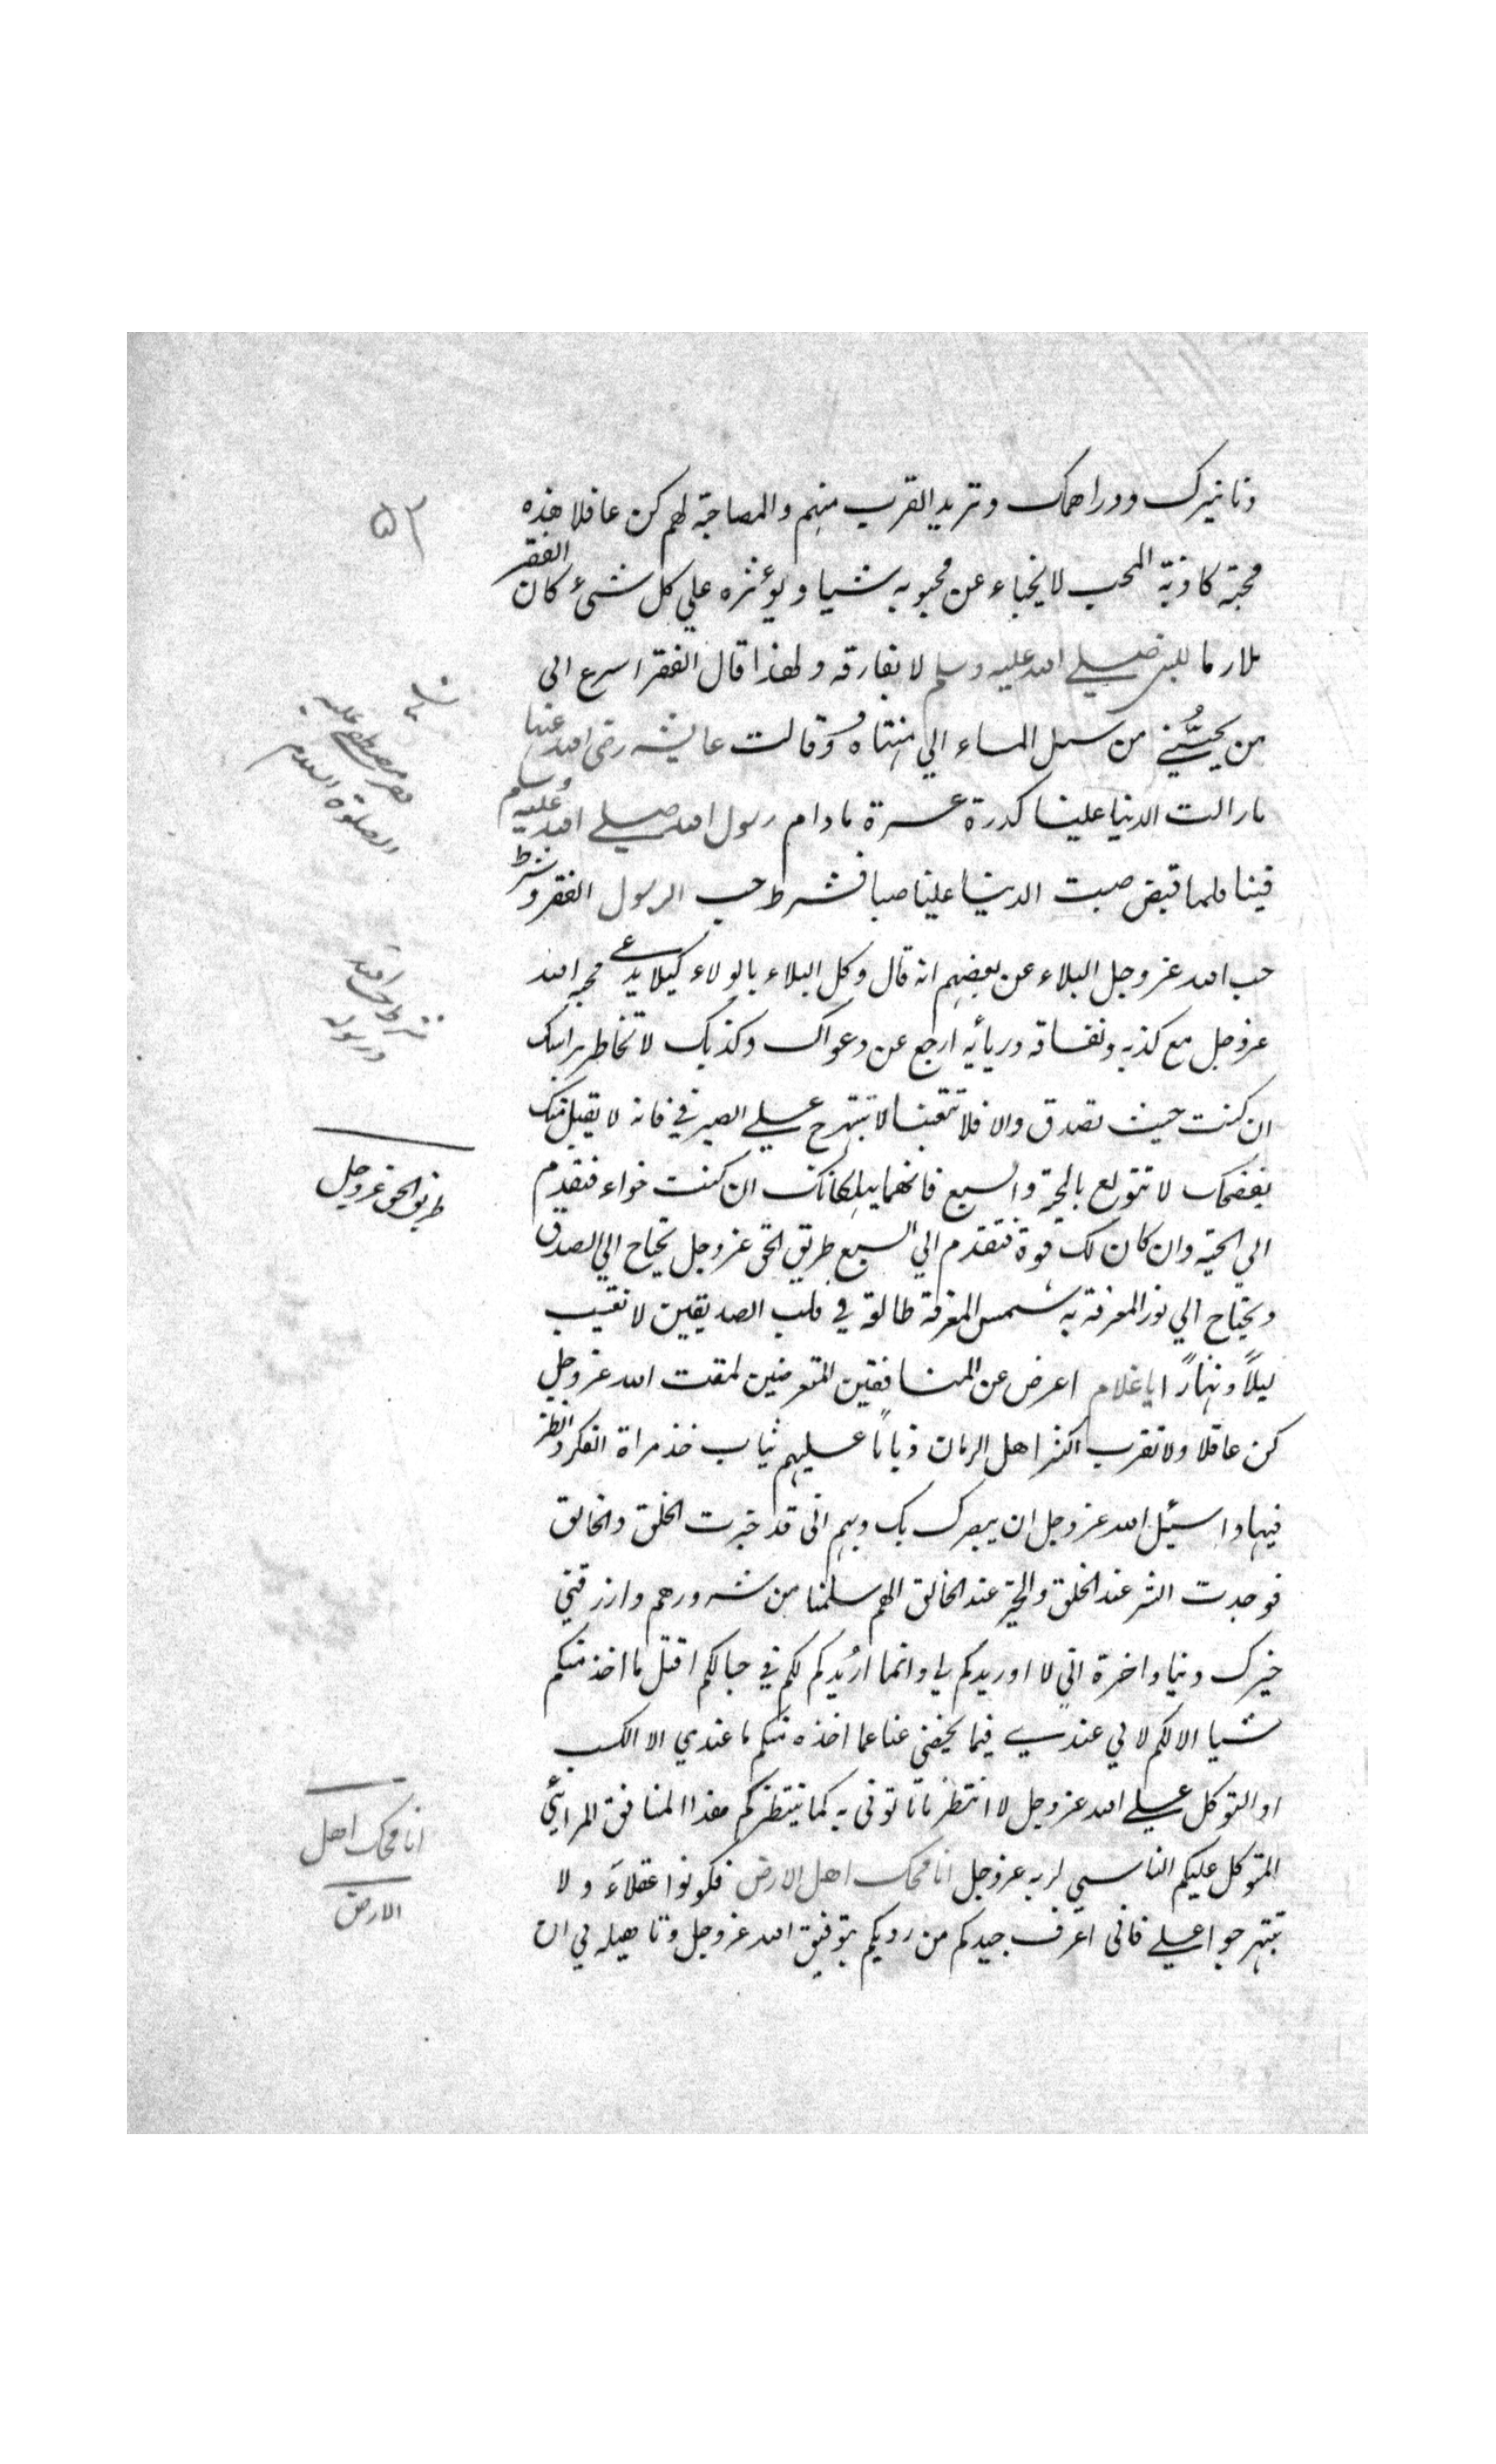 دنانيرك ودراهمك وتريد القرب منهم والمصاحبة لهم كن عاقلا هذه
محبة كاذبة المحب لا يخباء عن محبوبه شيا ويؤثره علي كل شئ كان الفقر
ملازما للنبى صلى الله عليه وسلم لا يفارقه ولهذا قال الفقر اسرع الى
من يحبُّني من سيل الماء الي منتهاهُ وقالت عايشه رضى الله عنها
مازالت الدنيا علينا كدرة عسرة مادام رسول الله صلى الله عليه وسلم
فينا فلما قبض صبت الدنيا علينا صبا فشرط حب الرسول الفقر وشرط
حب الله عز وجل البلاء عن بعضهم انه قال وكل البلاء بالولاء كيلا يدعى محبه الله
عز وجل مع كذبه ونفاقه وريأيه ارجع عن دعواك وكذبك لا تخاطر براسك
ان كنت حيث تصدق والا فلا تتعبنا لا تبتهرج على الصيرفي فانه لا يقبل منك
يفضحك لا تتولع بالحية والسبع فانهما يهلكانك ان كنت حواء فتقدم
الي الحية وان كان لك قوة فتقدم الي السبع طريق الحق عز وجل تحتاج الي الصدق
ويحتاج الي نور المعرفة به شمس المعرفة طالعة في قلب الصديقين لا تغيب
ليلاً ونهاراً يا غلام اعرض عن المنافقين المتعرضين لمقت الله عز وجل
كن عاقلا ولا تقرب اكثر اهل الزمان ذياباً عليهم ثياب خذ مراة الفكر وانظر
فيها واسئيل الله عز وجل ان يبصرك بك وبهم انى قد خبرت الخلق والخالق
فوجدت الشر عند الخلق والخير عند الخالق الهم سلمنا من شرورهم وارزقني
خيرك دنيا واخرة اني لا اوريدكم لي وانما اريدكم لكم في حبالكم افتل ما اخذ منكم
شيا الا لكم لا لي عندي فيما يخفي غنا عما اخذه منكم ما عندي الا الكسب
او التوكل على الله عز وجل لا انتظر ما تاتوني به كما ينتظركم هذا المنافق المرائي
المتوكل عليكم الناسي لربه عز وجل انا محك اهل الارض فكونوا عقلاء ولا
تبتهرجوا على فاني اعرف جيدكم من رديكم بتوفيق الله عز وجل وتاهيله لي ان
٥٢
فقر مصطفى عليه
الصلوة السلام
شرط حب الله
ورسوله
طريق الحق عز وجل
انا محك اهل
الارض